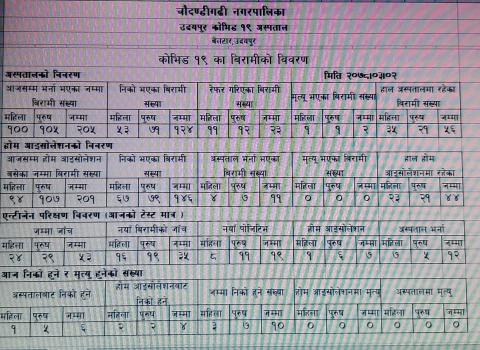 चौदण्डीगढी नगरपालिका
उदयपुर कोभिड १९ अस्पताल
बेलटार,उदयपुर
कोभिड १९ का बिरामीको विवरण
अस्पतालको विवरण मिति २०७८।०३।०२
आजसम्म भर्ना भएका जम्मा बिरामी संख्या निको भएका बिरामी संख्या रेफर गरिएका बिरामी संख्या मृत्यू भएका बिरामी संख्या हाल अस्पतालमा रहेका बिरामी संख्या
महिला पुरुष जम्मा महिला पुरुष जम्मा महिला पुरुष जम्मा महिला पुरुष जम्मा महिला पुरुष जम्मा
१०० १०५ २०५ ५३ ७१ १२४ ११ १२ २३ १ १ २ ३५ २१ ५६
होम आइसोलेशनको विवरण
आजसम्म होम आइसोलेशन बसेका जम्मा बिरामी संख्या निको भएका बिरामी संख्या अस्पताल भर्ना भएका बिरामी संख्या मृत्यु भएका बिरामी संख्या हाल होम आइसोलेशनमा रहेका
महिला पुरुष जम्मा महिला पुरुष जम्मा महिला पुरुष जम्मा महिला पुरुष जम्मा महिला पुरुष जम्मा
९४ १०७ २०१ ६७ ७९ १४६ ४ ७ ११ ० ० ० २३ २१ ४४
एन्टीजेन परिक्षण विवरण (आजको टेस्ट मात्र)
जम्मा जाँच नयाँ बिरामीको जाँच नयाँ पोजिटिभ होम आइसोलेसन अस्पताल भर्ना
महिला पुरुष जम्मा महिला पुरुष जम्मा महिला पुरुष जम्मा महिला पुरुष जम्मा महिला पुरुष जम्मा
२४ २९ ५३ १६ १९ ३५ ८ ११ १९ १ ६ ७ ७ ५ १२
आज निको हुने र मृत्यु हुनेको संख्या
अस्पतालबाट निको हुने होम आइसोलेशनबाट निको हुने जम्मा निको हुने संख्या होम आइसोलेशनमा मृत्यु अस्पतालमा मृत्यु
महिला पुरुष जम्मा महिला पुरुष जम्मा महिला पुरुष जम्मा महिला पुरुष जम्मा महिला पुरुष जम्मा
१ ५ ६ २ २ ४ ३ ७ १० ० ० ० ० ० ०